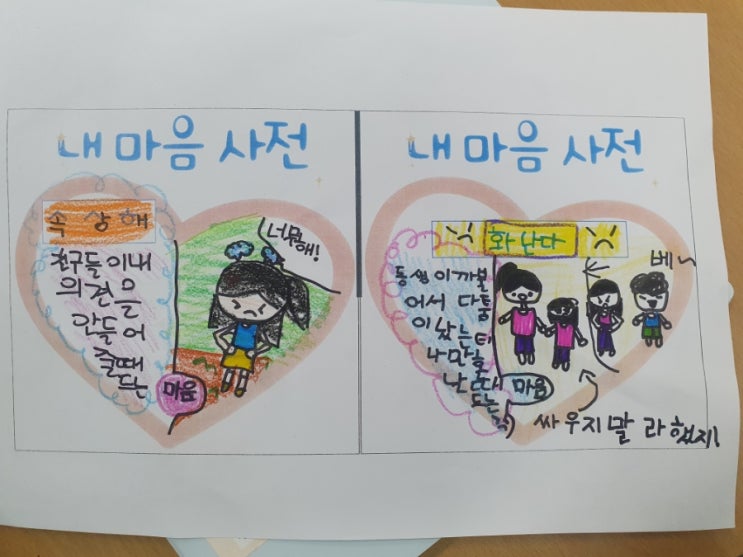 내 마음 사전
속상해
친구들이 내
의견을
안들어
줄때
드는
마음
너무
해!
내 마음 사전
화난다
동생이 까불
어서 다툼
이 났는데
나만 혼
난 때
드는
마음
베~
싸우지 말라 했지!